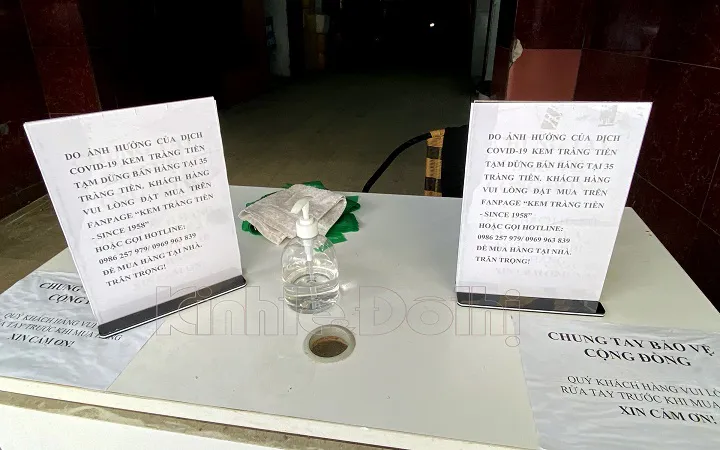 DO ẢNH HƯỞNG CỦA DỊCH
COVID-19 KEM TRÀNG TIỀN
TẠM DỪNG BÁN HÀNG TẠI 35
TRÀNG TIỀN. KHÁCH HÀNG
VUI LÒNG ĐẶT MUA TRÊN
FANPAGE “KEM TRÀNG TIỀN
- SINCE 1958”
HOẶC GỌI HOTLINE:
0986 257 979/ 0969 963 839
ĐỂ MUA HÀNG TẠI NHÀ.
TRÂN TRỌNG!
DO ẢNH HƯỞNG CỦA DỊCH
COVID-19 KEM TRÀNG TIỀN
TẠM DỪNG BÁN HÀNG TẠI 35
TRÀNG TIỀN. KHÁCH HÀNG
VUI LÒNG ĐẶT MUA TRÊN
FANPAGE “KEM TRÀNG TIỀN
- SINCE 1958”
HOẶC GỌI HOTLINE:
0986 257 979/ 0969 963 839
ĐỂ MUA HÀNG TẠI NHÀ.
TRÂN TRỌNG!
CHUNG
CỘNG
QUÝ KHÁCH HÀNG VUI
RỬA TAY TRƯỚC KHI MUA
XIN CẢM ƠN!
KinhteDothi
CHUNG TAY BẢO VỆ
CỘNG ĐỒNG
QUÝ KHÁCH HÀNG VUI
RỬA TAY TRƯỚC KHI MUA
XIN CẢM ƠN!